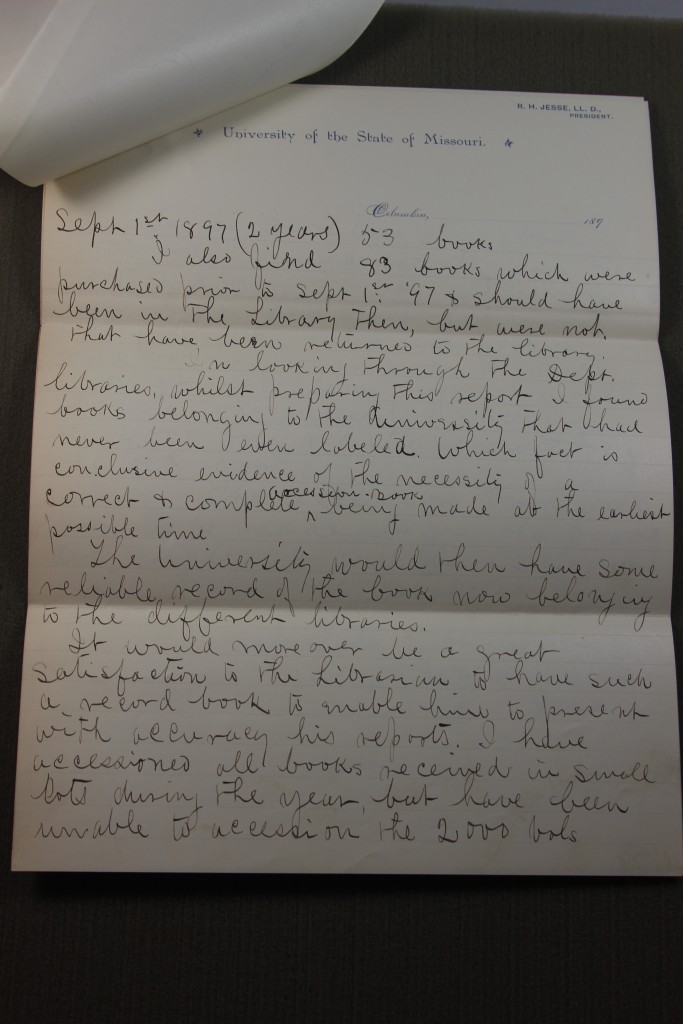 R. H. JESSE, LL. D.,
PRESIDENT.
University of the State of Missouri.
Columbia, 189
Sept 1st 1897 (2 years) 53 books
I also find 83 books which were
purchased prior to Sept 1st '97 & should have
been in the Library then, but were not,
that have been returned to the library.
In looking through the Dept.
libraries, whilst preparing this report I found
books belonging to the University that had
never been even labeled. Which fact is
conclusive evidence of the necessity of a
correct & complete ^ accession-book being made at the earliest
possible time
The University would then have some
reliable record of the book now belonging
to the different libraries.
It would moreover be a great
satisfaction to the Librarian to have such
a record book to enable him to present
with accuracy his reports. I have
accessioned all books received in small
lots during the year, but have been
unable to accession the 2000 vols